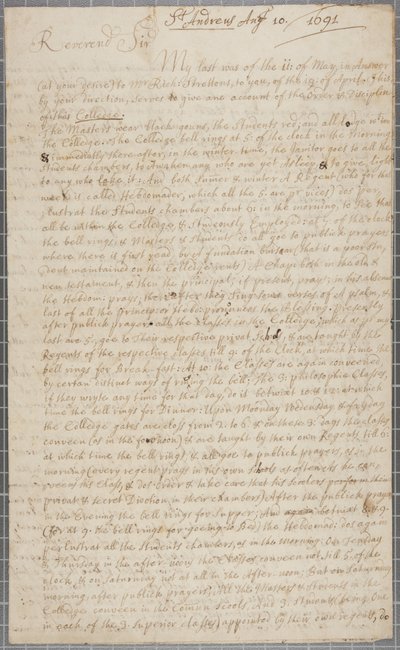 St Andrews Aug 10. 1691
Reverend Sir
My last was of the 11: of May, in Answer
(at your desire) to Mr Rich: Strettons, to you, of the 19: of Aprile. This
by your direction, serves to give ane account of the Order & Disciplin
of this Colledge.
The Masters wear black gouns, the Students red, are all
the Colledge. The Colledge bell rings at 5 of the clock in the morning
& immediatly thereafter, in the winter time, the Janitor goes to all the
Students chambers to Awaken any who are yet Asleep & to give light
to any who both summer & winter A Regent (who for the
week is called Hebdomader, which all the 5. are per vices) does per,
lustrat the Students chambers about 6: in the morning, to see that
all be within the Colledge & studiously Employed: of the clock
the bell rings, & Masters & Students do all goe to publick prayers
where there is first read by a fundation bursar (that is a poor Stu,
dent maintained on the Colledge rents) A Chapt both in the old &
new testament, & then the principal; if present, prays: in his absence
the Hebdom: prays, they sing some verses of A psalm, &
last of all the principal or Hebd: pronounces the blessing. Presently
after publick prayers all the Classes in the Colledge, which as in my
last are 5, goe to their respective privat & are taught by the
Regents of the respective classes till 9: of the clock, at which time the
bell rings for Breakfast: At 10: the Classes are again conveened
by certan distinct ways of ringing the bell; The 3: philosophie Classes,
if they wryte any time for that day, do it betwixt 10 & 12: at which
time the bell rings for Dinner: Upon Moonday Wedensday & fryday
the Colledge gates are clos from 2: to 6: & on these 3: days the classes
conveen (as in the forenoon) & are taught by their own Regents till 6:
at which time the bell rings & all goe to publick prayers, as in the
morning (every regent prays in his own as often as he con,
veens his Class, & does order & take care that his scolers perform their
privat & secret Divotion in their chambers) After the publick prayers
in the Evening the bell rings for supper; And again betwixt 8 & 9.
(for at 9. the bell rings for going to Bed) the Hebdomad: does again
perlustrat all the Students chambers, as in the morning. On Tusday
& Thursday in the after noons the Classes conveen not till 5. of the
clock, & on Saturnday not at all in the After-noon; But on Saturnday
morning, after publick prayers, All the Masters & Students in the
Colledge conveen in the Comun Scools, And 3. Students (being One
in each of the 3. superior classes) appointed by their own regents, do